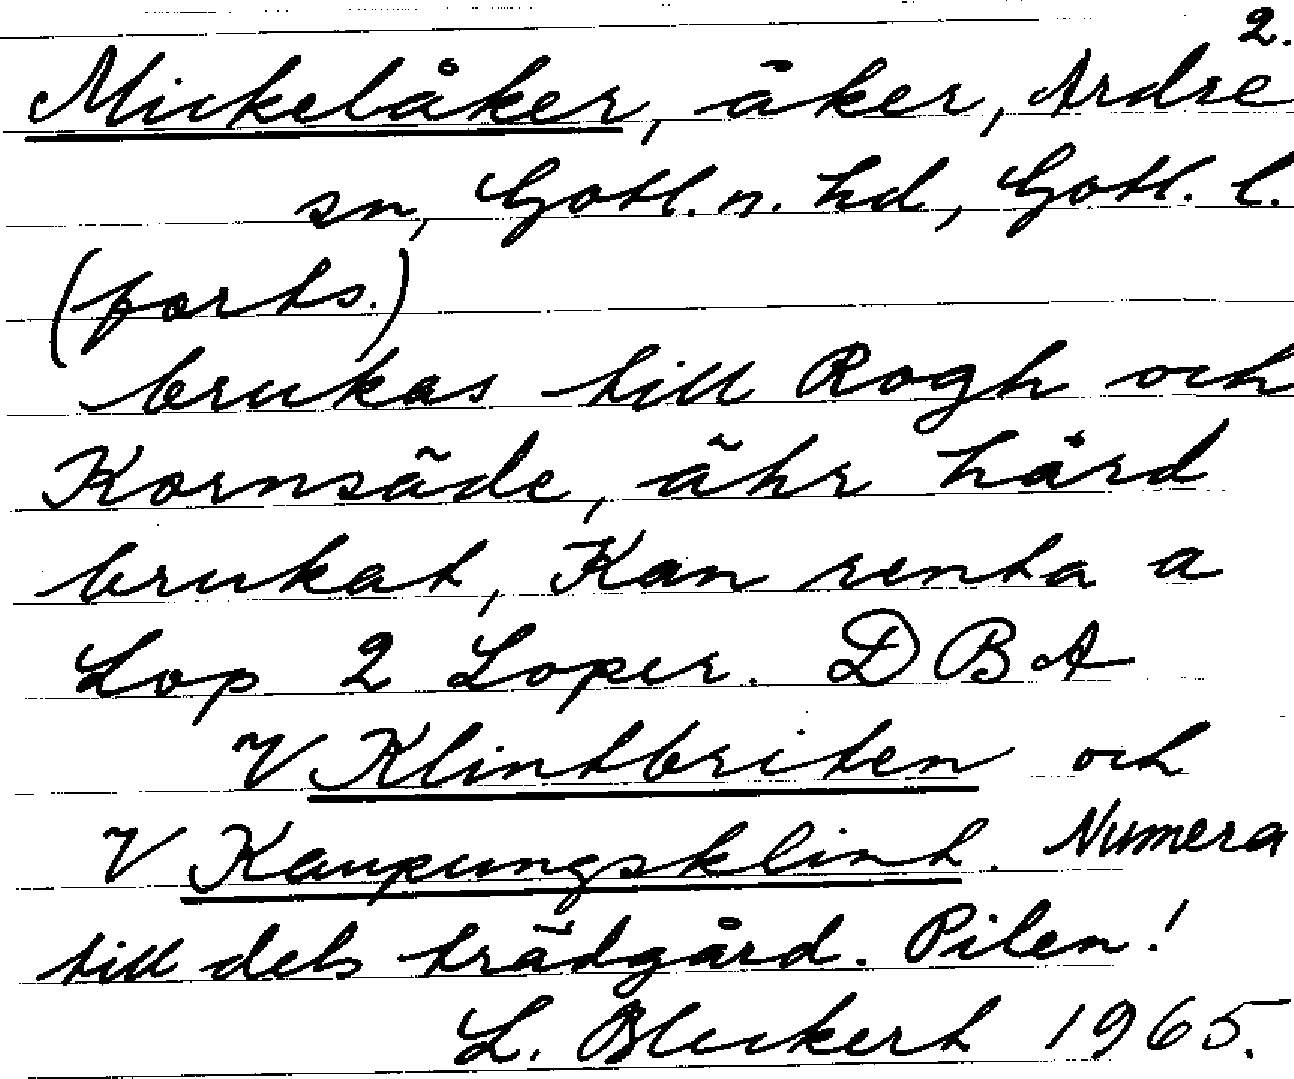 2.
Mickelåker, åker, Ardre
sn, Gotl. n. hd, Gotl. l.
(forts.)
brukas till Rogh och
Kornsäde, ähr hård
brukat, Kan renta a
Lop 2 Loper. DBA
V Klintbriten och
V Kaupungsklint. Numera
till dels trädgård. Pilen!
L. Bluckert 1965.